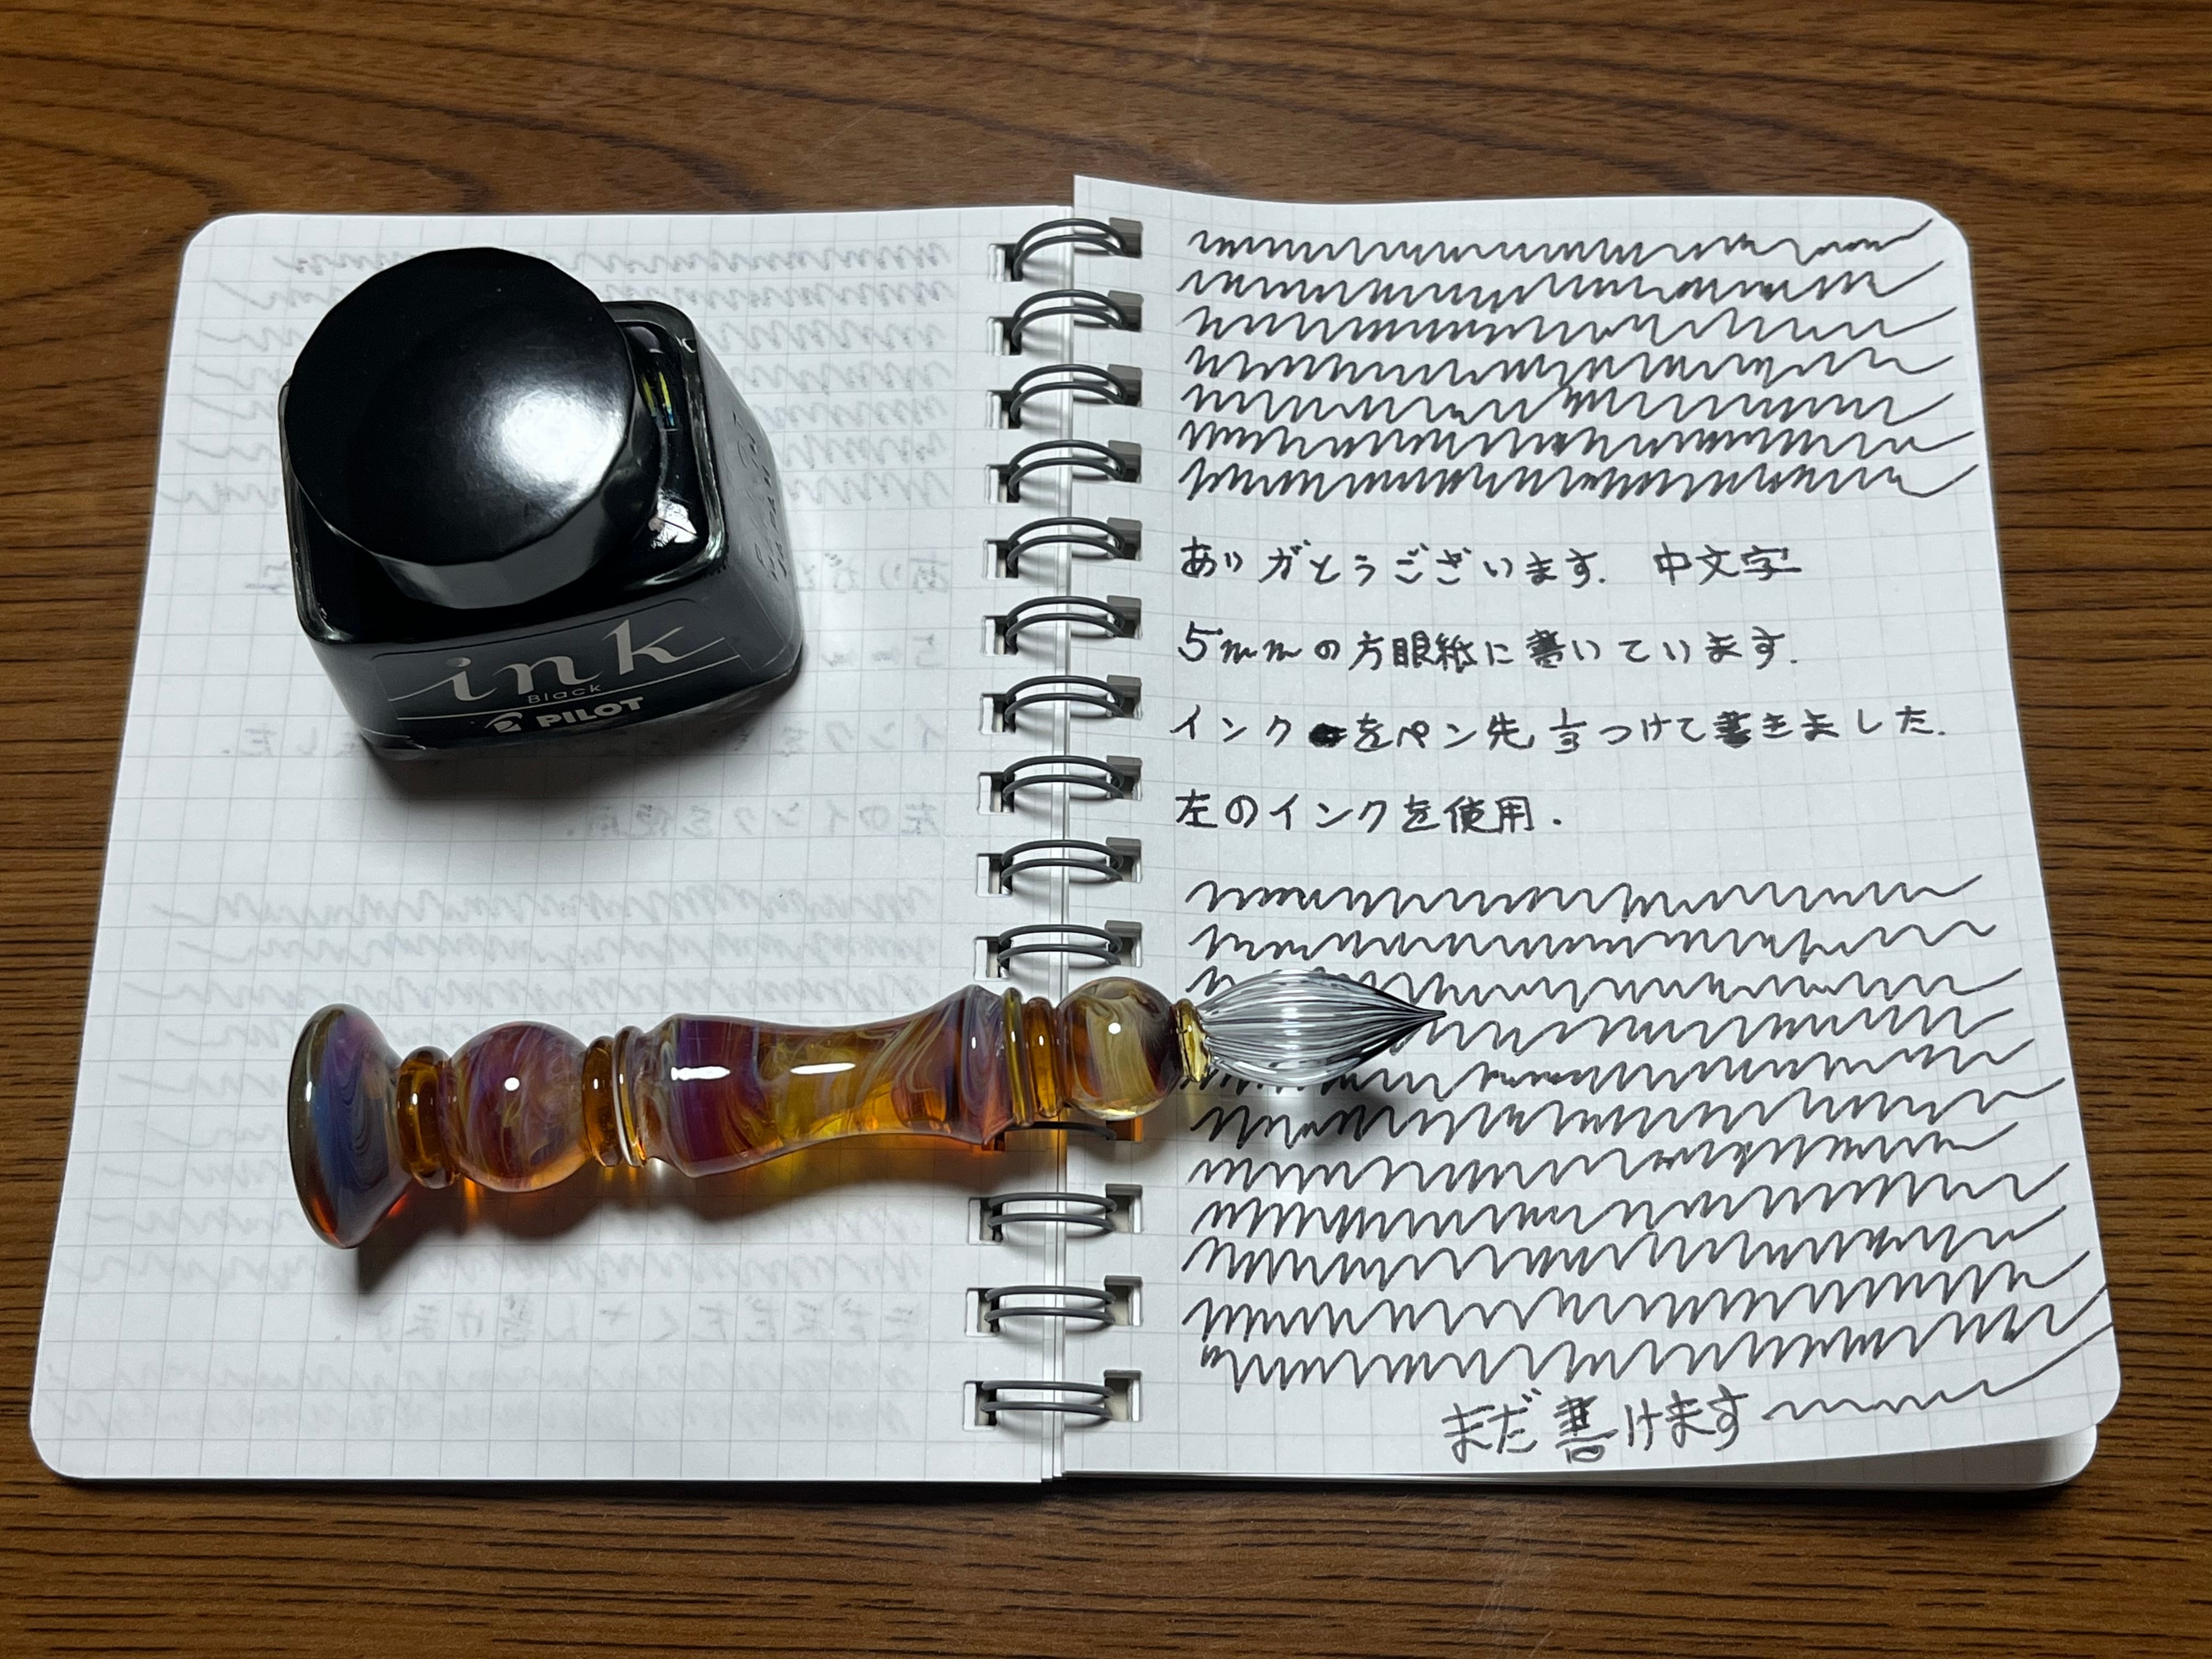 ink
Black
PILOT
ありがとうございます. 中文字
5mmの方眼紙に書いています.
インクをペン先1/3つけて書きました.
左のインクを使用.
まだ書けます